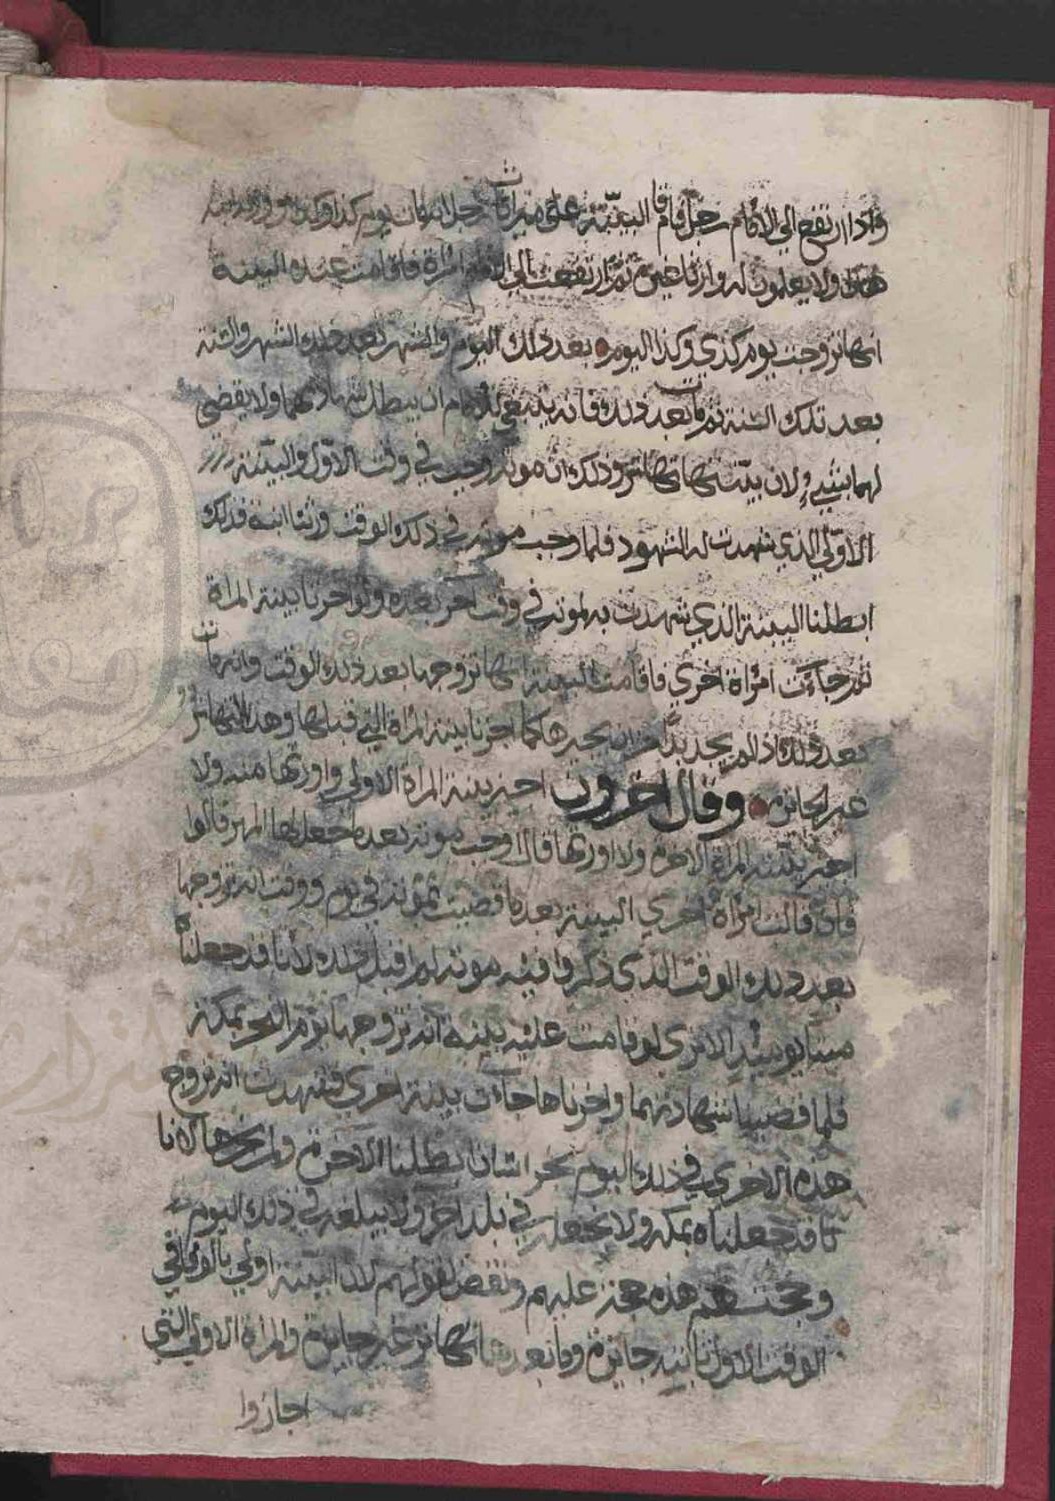 واذا ارتفع الي الامام رجل فاقام البينة على ميراث رجل انه مات يوم كذا وكذا
هذا ولا يعلمون له وارثا غيره ثم ارتفعت الي الامام امراة فاقامت عنده البينة
انها تزوجت يوم كذي وكذا اليوم بعد ذلك اليوم والشهر بعد ذلك الشهر والسنة
بعد تلك السنة ثم مات بعد ذلك فانه ينبغي للامام ان يبطل شهادتهما ولا يقضي
لها بشيء ولان بينتها تهاتر وذلك ان موته وجب في وقت الاول والبينة
الاولي الذي شهدت له الشهود فلما وجب موته في ذلك الوقت ورثنا ابنه فذلك
ابطلنا البينة الذي شهدت به لموته في وقت اخر بعده ولو اجزنا بينة المراة
ثم جاءت امراة اخري فاقامت البينة انها تزوجها بعد ذلك الوقت وانه مات
بعد ذلك اذ لم يجد بدا من ان يجيزها كما اجزنا بينة المراة التي قبلها وهذا التهاتر
غير الجائز وقال اخرون اجيز بينة المراة الاولي واورثها منه ولا
اجيز بينة المراة الاخرة ولا اورثها قال اوجب موته بعد ما جعل لها المهر قالوا
فان قالت امراة اخري البينة بعد ما قضيت بموته في يوم ووقت انه تزوجها
بعد ذلك الوقت الذي ذكروا فيه موته لم اقبل ذلك لانا قد جعلناه
ميتا يومئذ الا تري لو قامت عليه بينة انه تزوجها يوم النحر بمكة
فلما قضينا بشهادتهما واجزناها جاءت بينة اخري فشهدت انه تزوج
هذه الاخري في ذلك اليوم بخراسان ابطلنا الاخرة ولم نجزها لانا
نا قد جعلناه بمكة ولا نجعله في بلد اخر ولا يبلغه في ذلك اليوم
وحجتهم هذه حجة عليهم ونقض لقولهم لان البينة اولي بالوقت في
الوقت الاول ثابتة جائزة وما بعدها تهاتر غير جايزة والمراة الاولي التي
اجازوا